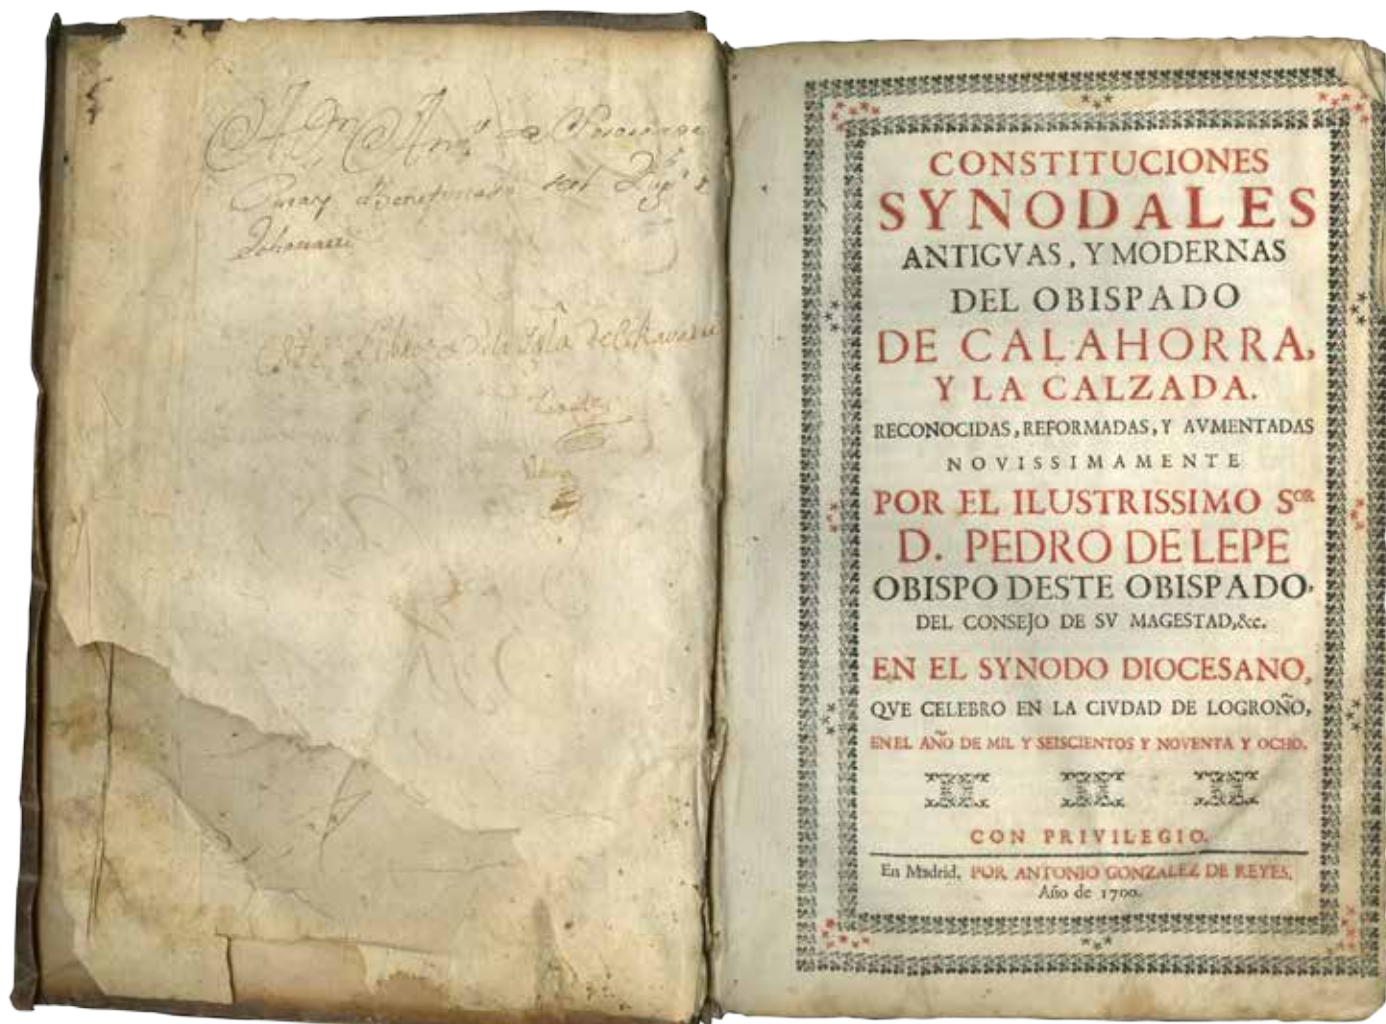 de
Libro de la
de
CONSTITUCIONES
SYNODALES
ANTIGVAS, Y MODERNAS
DEL OBISPADO
DE CALAHORRA,
Y LA CALZADA.
RECONOCIDAS, REFORMADAS, Y AVMENTADAS
NOVISSIMAMENTE
POR EL ILUSTRISSIMO SOR
D. PEDRO DE LEPE
OBISPO DESTE OBISPADO,
DEL CONSEJO DE SV MAGESTAD, &c.
EN EL SYNODO DIOCESANO,
QVE CELEBRO EN LA CIVDAD DE LOGROÑO,
EN EL AÑO DE MIL Y SEISCIENTOS Y NOVENTA Y OCHO.
CON PRIVILEGIO.
En Madrid. POR ANTONIO GONZALEZ DE REYES,
Año de 1700.